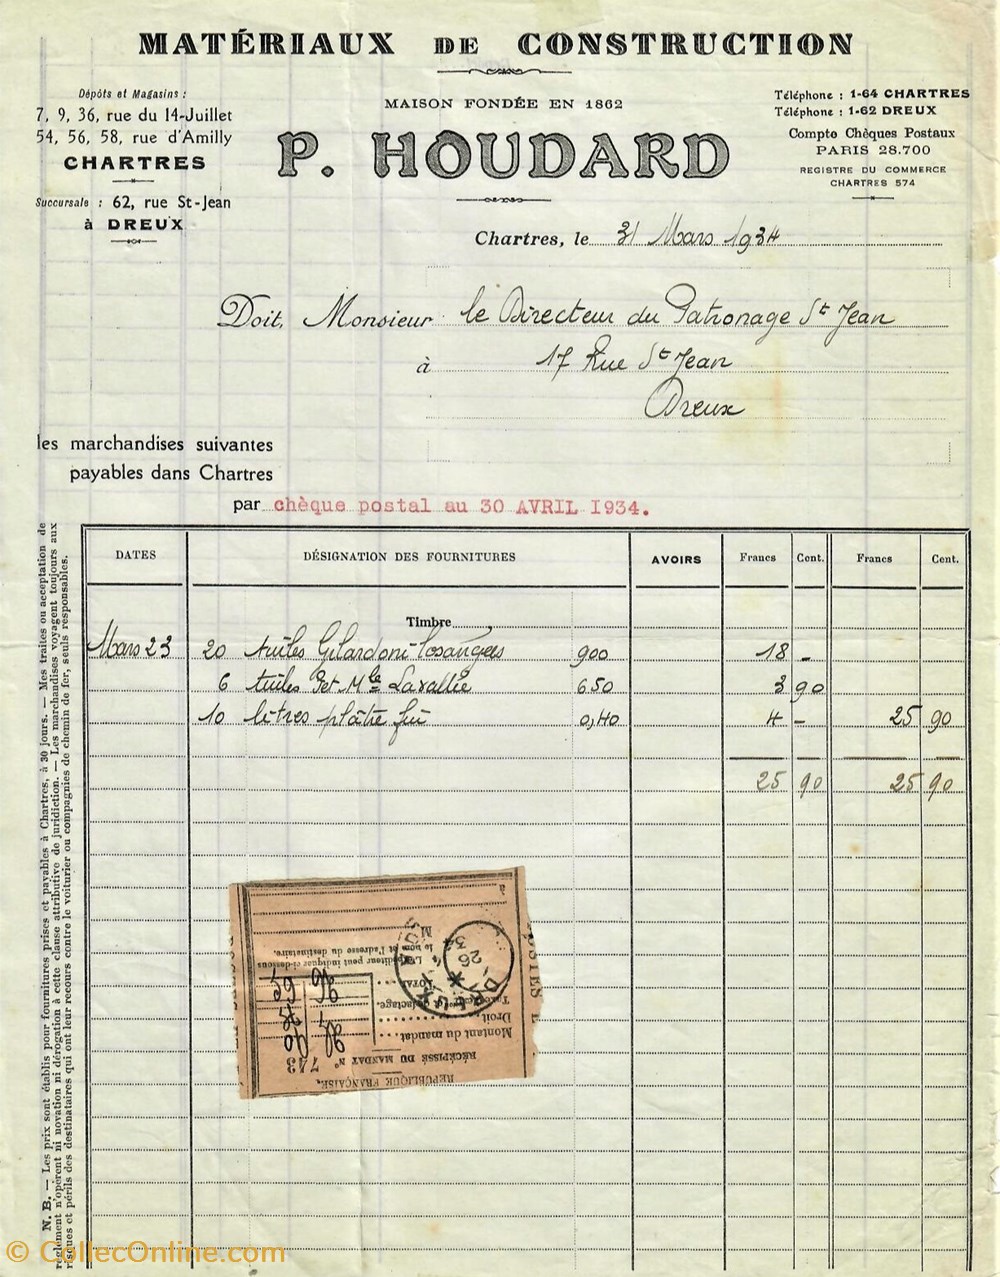 MATÉRIAUX DE CONSTRUCTION
Dépôts et Magasins :
7, 9, 36, rue du 14-Juillet
54, 56, 58, rue d'Amilly
CHARTRES
Succursale : 62, rue St-Jean
à DREUX
MAISON FONDÉE EN 1862
P. HOUDARD
Téléphone : 1-64 CHARTRES
Téléphone : 1-62 DREUX
Compte Chèques Postaux
PARIS 28.700
REGISTRE DU COMMERCE
CHARTRES 574
Chartres, le 31 Mars 1934
Doit, Monsieur le Directeur du Patronage St Jean
à 17 Rue St Jean
Dreux
les marchandises suivantes
payables dans Chartres
par chèque postal au 30 AVRIL 1934.
DATES DÉSIGNATION DES FOURNITURES AVOIRS Francs Cent. Francs Cent.
Timbre
Mars 23 20 tuiles Gilardoni losangées 900 18 -
6 tuiles Pet. Mle Lavallée 650 3 90
10 litres plâtre fin 0,40 4 - 25 90
25 90 25 90
N. B. — Les prix sont établis pour fournitures prises et payables à Chartres, à 30 jours. — Mes traites ou acceptation de
règlement n'opèrent ni novation ni dérogation à cette clause attributive de juridiction. — Les marchandises voyagent toujours aux
risques et périls des destinataires qui ont leur recours contre le voiturier ou compagnies de chemin de fer, seuls responsables.
RÉPUBLIQUE FRANÇAISE.
RÉCÉPISSÉ DU MANDAT N° 743
Montant du mandat
Droit
Taxe de factage.
TOTAL
L'expéditeur peut indiquer ci-dessous
le nom et l'adresse du destinataire.
M
à
DREUX
26
34
© CollecOnline.com